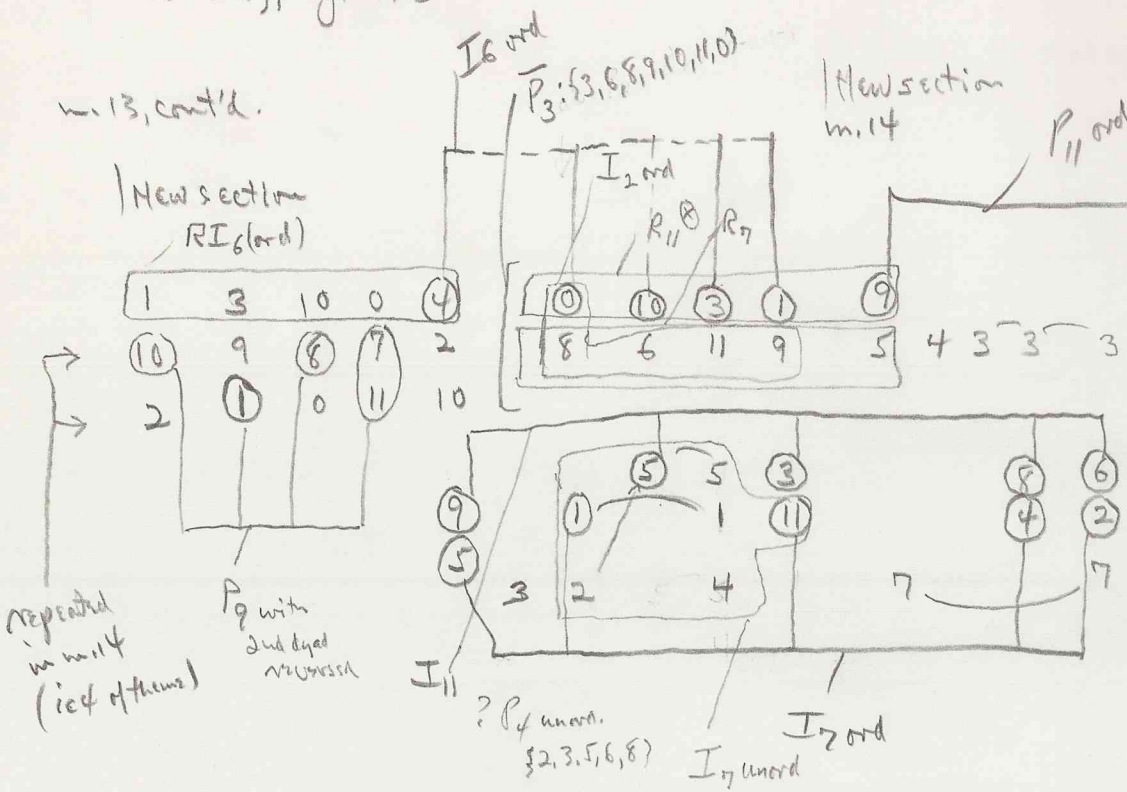 I6 ord
P3: {3,6,8,9,10,11,0}
m. 13, cont'd.
New section
m. 14
P11 ord
New section
RI6 (ord)
I2 ord
R11 ⊗ R7
1 3 10 0 4
0 10 3 1 9
10 9 8 7 2
8 6 11 9 5 4 3 3 3
2 1 0 11 10
5 5 3 8 6
9 1 1 11 4 2
5
3 2 4 7 7
repeated
in m. 14
P9 with
2nd dyad
I11
? P4 unord.
{2,3,5,6,8}
I7 unord
I7 ord